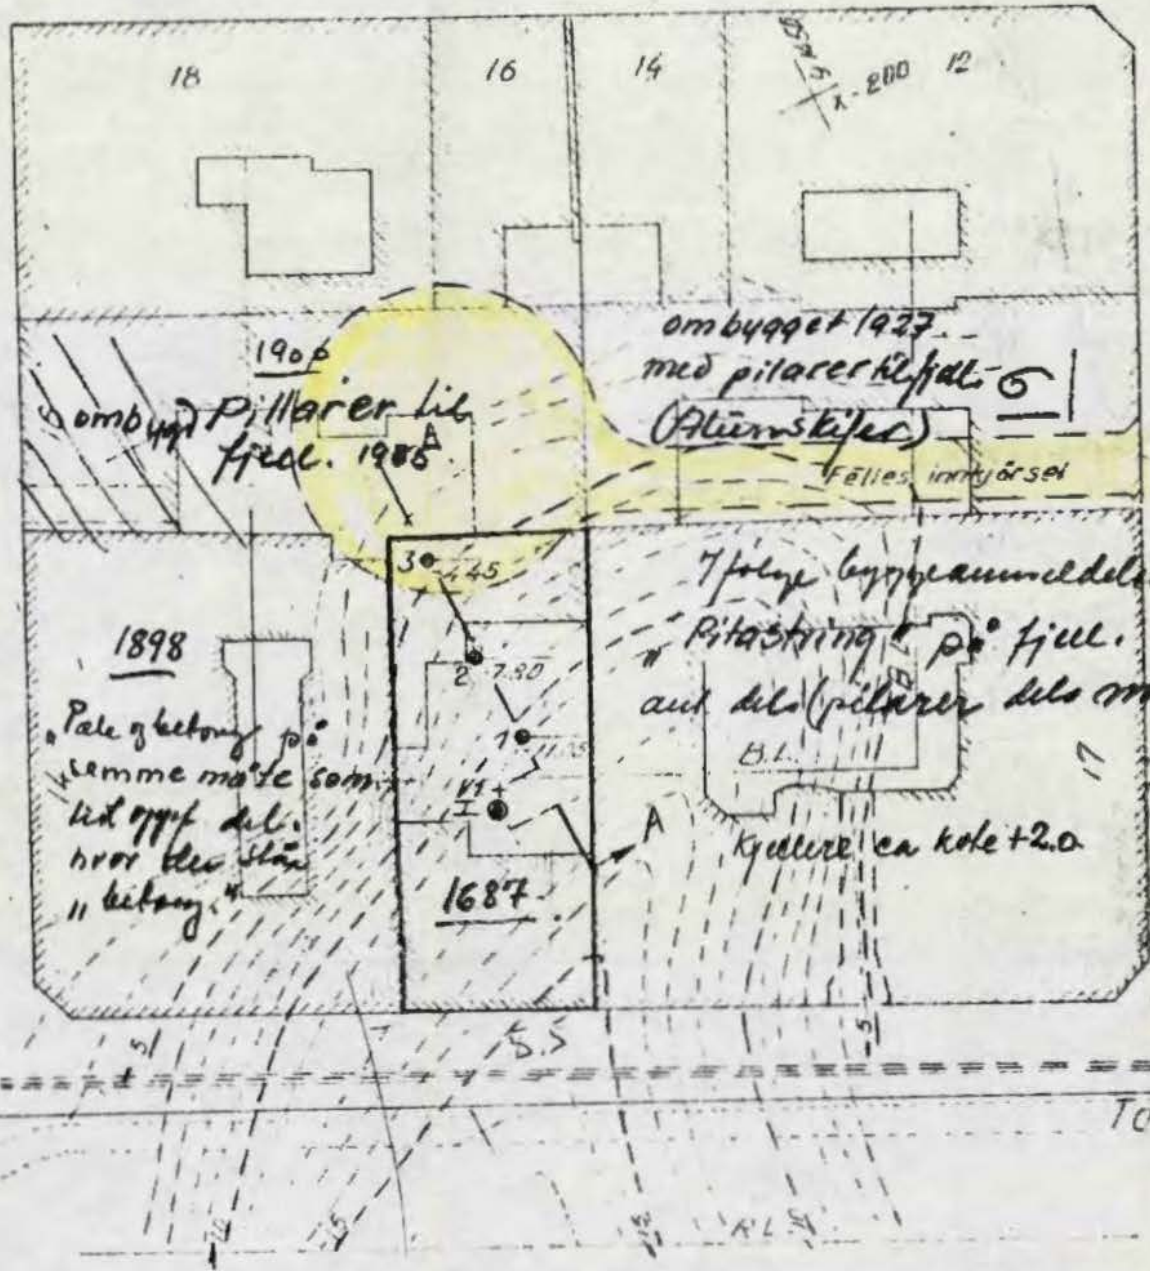 18
16
14
12
X-200
1900
ombygget 1927
med pilarer til fjell
(Alunskifer)
ombygd Pillarer til
fjell. 1985
A
Felles innkjörsel
3
4.45
2
7.80
1
11.75
V1+
I
A
1687
1898
"Pæle og betong på
samme måte som
hvor den står
"betong."
I følge byggeanmeldels
"Pilastring" på fjell.
ant dels (pilarer dels m
B.L.
17
Kjellere ca kote +2.0
5
5.5
5
To
20
15
15
R.L.
10